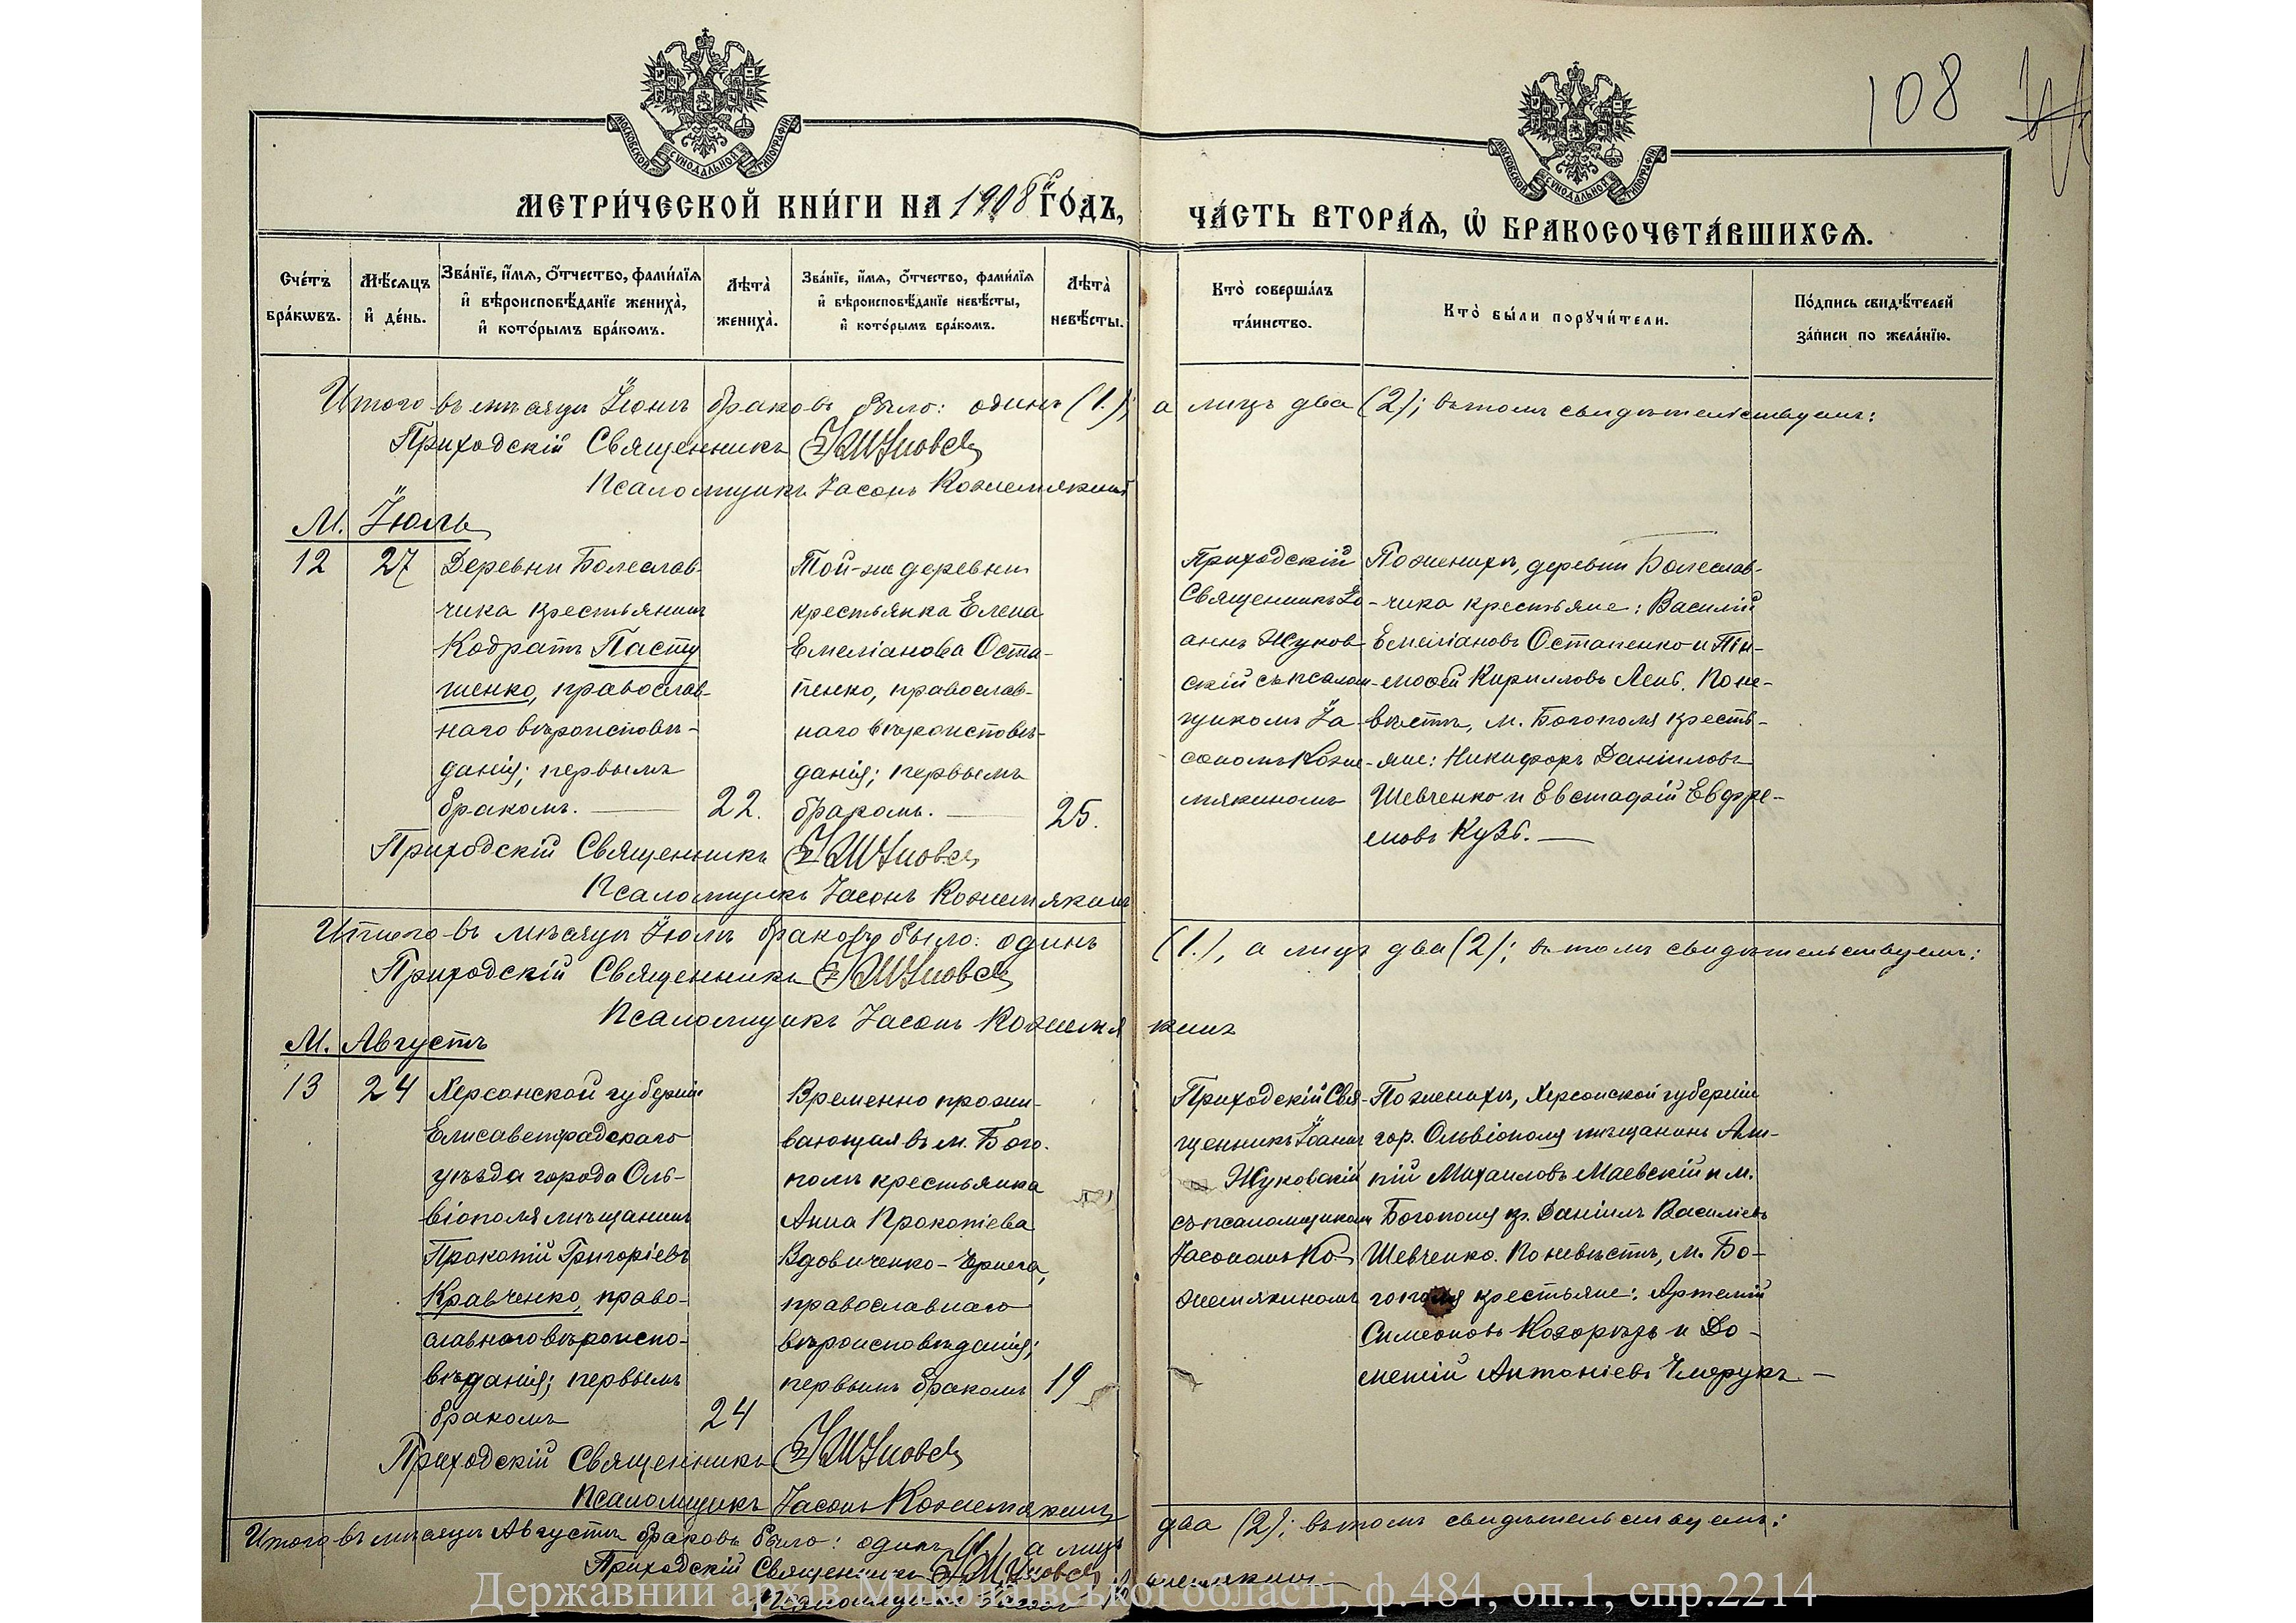 108
МОСКОВСКОЙ СУНОДАЛЬНОЙ ТИПОГРАФІИ
МОСКОВСКОЙ СУНОДАЛЬНОЙ ТИПОГРАФІИ
МЕТРИ́ЧЕСКОЙ КНИ́ГИ НА 1908й ГО́ДЪ, ЧА́СТЬ ВТОРА́Ѧ, Ѽ БРАКОСОЧЕТА́ВШИХСѦ.
Сче́тъ бра́кѡвъ.
Мѣ́сѧцъ и҆ де́нь.
Зва́нїе, и҆́мѧ, ѻ҆́тчество, фами́лїѧ
и҆ вѣроисповѣ́данїе жениха̀,
и҆ кото́рымъ бра́комъ.
Лѣта̀ жениха̀.
Зва́нїе, и҆́мѧ, ѻ҆́тчество, фами́лїѧ
и҆ вѣроисповѣ́данїе невѣ́сты,
и҆ кото́рымъ бра́комъ.
Лѣта̀ невѣ́сты.
Кто̀ соверша́лъ та́инство.
Кто̀ бы́ли порꙋчи́тели.
По́дпись свидѣ́телей
за́писи по жела́нїю.
Итого въ мѣсяцѣ Іюнѣ браковъ было: одинъ (1.); а лицъ два (2); въ томъ свидѣтельствуемъ:
Приходскій Священникъ
Псаломщикъ Іасонъ Кожемякинъ
М. Іюль
12 27 Деревни Болеслав-
чика крестьянинъ
Кодратъ Пасту
шенко, православ-
наго вѣроисповѣ-
данія; первымъ
бракомъ. — 22.
Той-же деревни
крестьянка Елена
Емеліанова Оста-
пенко, православ-
наго вѣроисповѣ-
данія; первымъ
бракомъ. — 25.
Приходскій
Священникъ Іо-
аннъ Жуков-
скій съ псалом-
щикомъ Іа-
сономъ Коже-
мякиномъ
По женихѣ, деревни Болеслав-
чика крестьяне: Василій
Емеліановъ Остапенко и Ти-
моѳей Кирилловъ Лень. По не-
вѣстѣ, м. Богополя кресть-
яне: Никифоръ Даніиловъ
Шевченко и Евстафій Евфре-
мовъ Кузь. —
Приходскій Священникъ
Псаломщикъ Іасонъ Кожемякинъ
Итого въ мѣсяцѣ Іюлѣ браковъ было: одинъ (1.), а лицъ два (2); въ томъ свидѣтельствуемъ:
Приходскій Священникъ
Псаломщикъ Іасонъ Кожемякинъ
М. Августъ
13 24 Херсонской губерніи
Елисаветградскаго
уѣзда города Оль-
віополя мѣщанинъ
Прокопій Григоріевъ
Кравченко, право-
славнаго вѣроиспо-
вѣданія; первымъ
бракомъ 24
Временно прожи-
вающая въ м. Бого-
полѣ крестьянка
Анна Прокопіева
Вдовиченко-Чрнега,
православнаго
вѣроисповѣданія;
первымъ бракомъ 19
Приходскій Свя-
щенникъ Іоаннъ
Жуковскій
съ псаломщикомъ
Іасономъ Ко-
жемякиномъ
По женихѣ, Херсонской губерніи
гор. Ольвіополя мѣщанинъ Ан-
пій Михаиловъ Маевскій и м.
Богополя кр. Даніилъ Василіевъ
Шевченко. По невѣстѣ, м. Бо-
гополя крестьяне: Артемій
Симеоновъ Козорѣзъ и До-
метій Антоніевъ —
Приходскій Священникъ
Псаломщикъ Іасонъ Кожемякинъ
Итого въ мѣсяцѣ Августѣ браковъ было: одинъ (1.) а лицъ два (2); въ томъ свидѣтельствуемъ:
Приходскій Священникъ
Псаломщикъ Іасонъ Кожемякинъ
Державний архів Миколаївської області, ф.484, оп.1, спр.2214